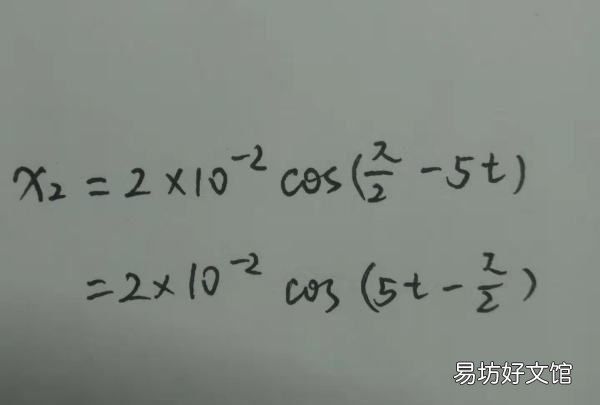 x₂ = 2 × 10⁻² cos(π/2 - 5t)
= 2 × 10⁻² cos(5t - π/2)
易坊好文馆